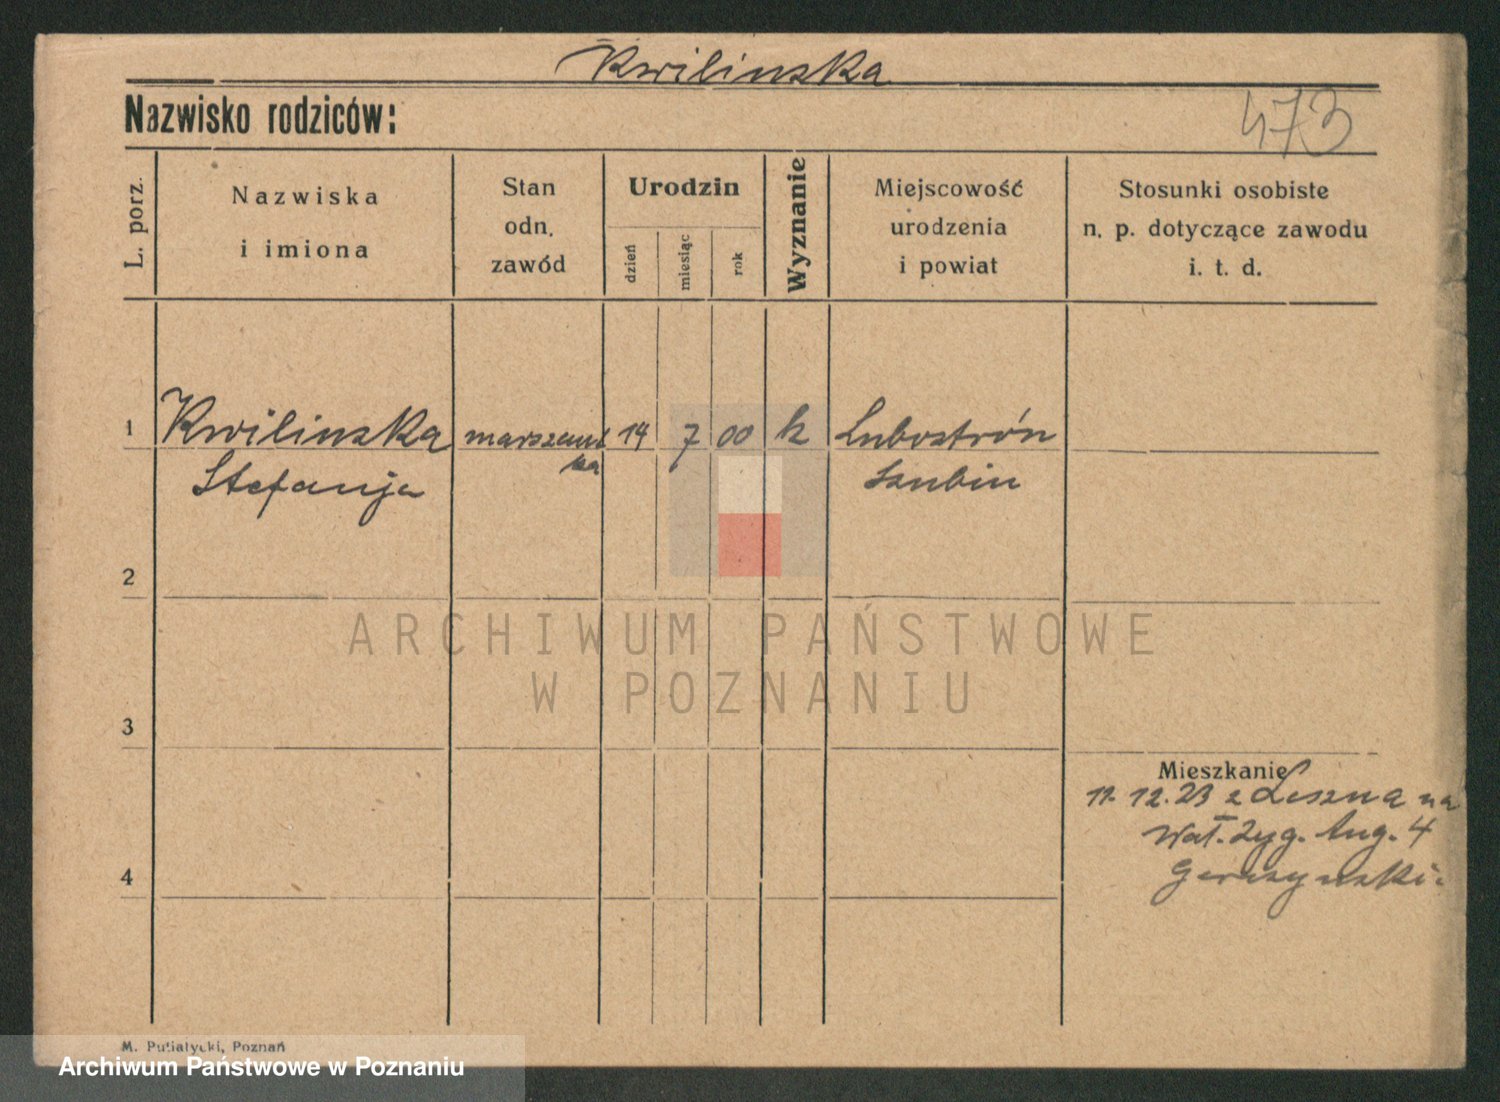 Kwilinska
Nazwisko rodziców:
473
L. porz.
Nazwiska
i imiona
Stan
odn.
zawód
Urodzin
dzień
miesiąc
rok
Wyznanie
Miejscowość
urodzenia
i powiat
Stosunki osobiste
n. p. dotyczące zawodu
i. t. d.
1 Kwilinska 14 7 00 k Lubostroń
ka
Stefanja Szubin
2
ARCHIWUM PAŃSTWOWE
W POZNANIU
3
Mieszkanie
11. 12. 23 z Leszna na
Wał. Zyg. Aug. 4
4
M. Putiatycki, Poznań
Archiwum Państwowe w Poznaniu